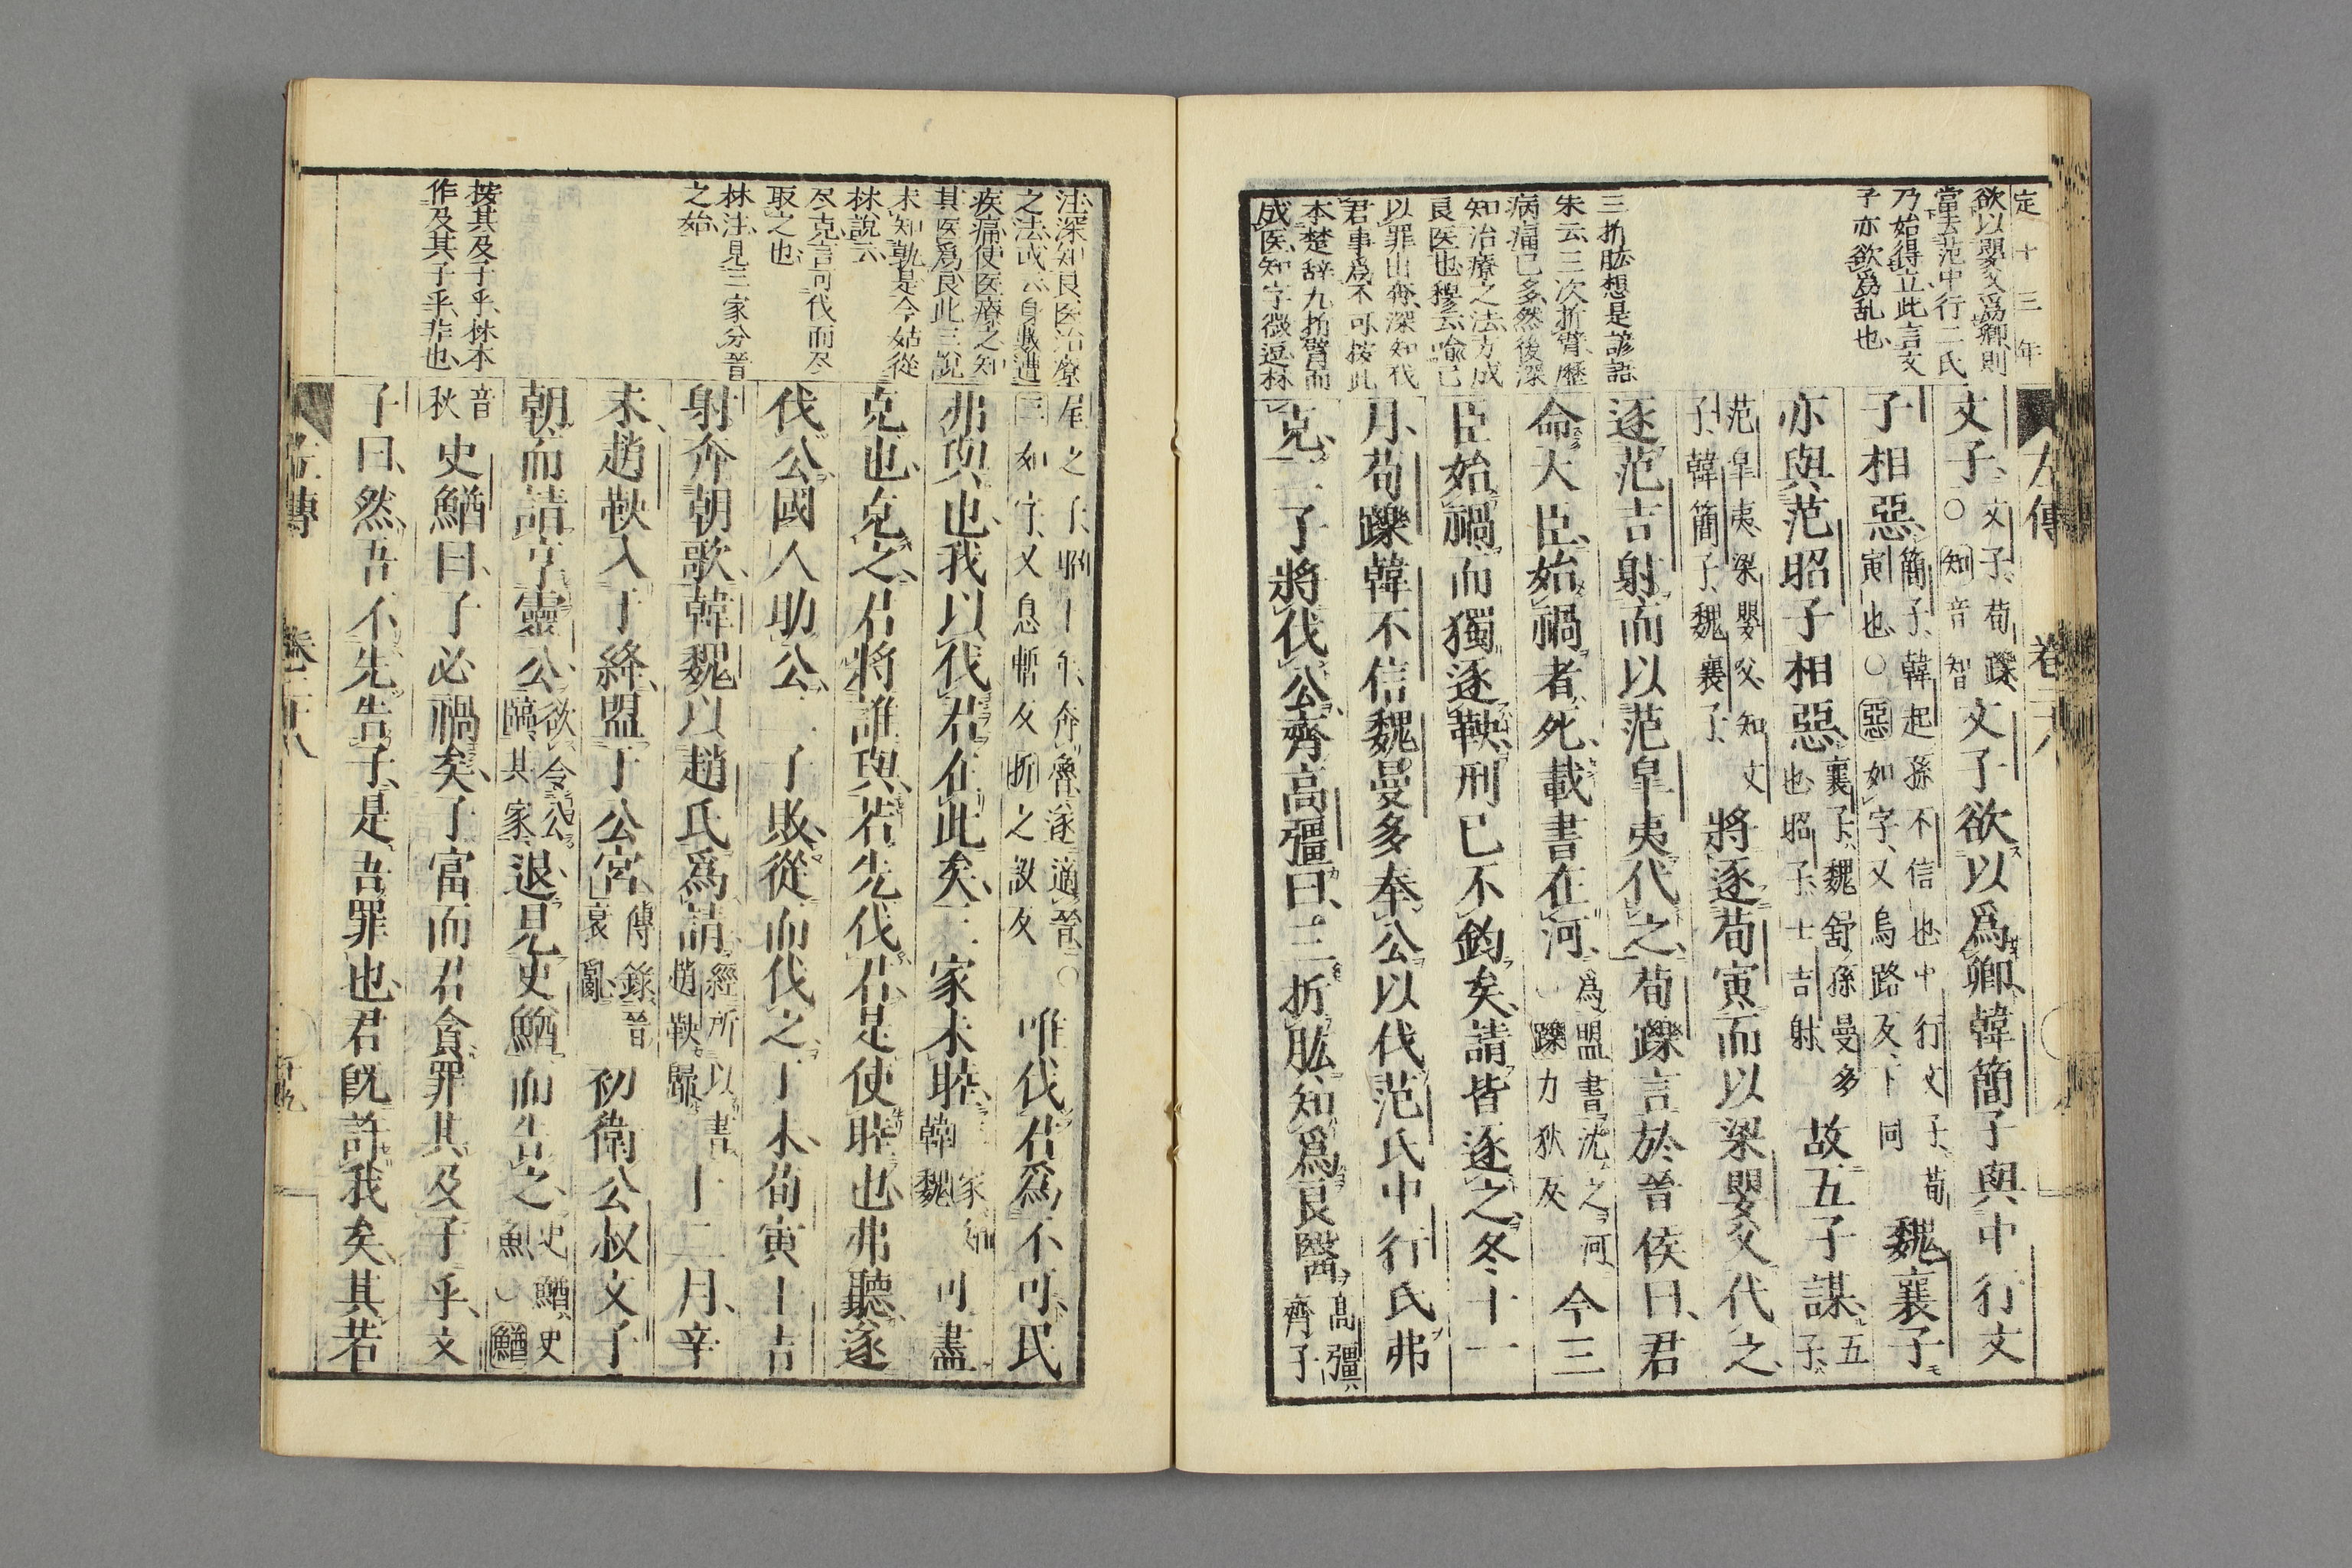 定十三年
欲以嬰父爲卿、則
當去范中行二氏
乃始得立此言文
子亦欲爲乱也
三折肱想是諺語
朱云三次折臂、歷
病痛已多、然後深
知治療之法、方成
良医也、穆云喻已
以罪出奔、深知伐
君事爲不可、按此
本楚辞九折臂而
成医、知字微逗、林
左傳 卷二十八
文子、文子、荀躒、○知音智文子欲以爲卿、韓簡子與中行文
子相惡、簡子、韓起孫不信也、中行文子、荀寅也、○惡如字、又烏路反、下同魏襄子
亦與范昭子相惡、襄子、魏舒孫曼多也、昭子、士吉射故五子謀、五子、
范皐夷、梁嬰父、知文子、韓簡子、魏襄子、將逐荀寅、而以梁嬰父代之、
逐范吉射、而以范皐夷代之、荀躒言於晉侯曰、君
命大臣、始禍者死、載書在河、爲盟書、沈之河、○躒力狄反今三
臣始禍、而獨逐鞅、刑已不鈞矣、請皆逐之、冬十一
月、荀躒韓不信魏曼多奉公以伐范氏中行氏、弗
克、二子將伐公、齊高彊曰、三折肱、知爲良醫、高彊、齊子
注深知良医治療
之法、或云身數遭
疾痛、使医療之、知
其医爲良、此三說
未知孰是、今姑從
林說云
尽克、言可伐而尽
取之也
林注、見三家分晉
之始
按其及子乎、林本
作及其子乎、非也
尾之子、昭十年、奔魯、遂適晉、○三如字、又息暫反、折之設反唯伐君爲不可、民
弗與也、我以伐君在此矣、三家未睦、三家、知韓魏可盡
克也、克之、君將誰與、若先伐君、是使睦也、弗聽、遂
伐公、國人助公、二子敗、從而伐之、丁未、荀寅士吉
射奔朝歌、韓魏以趙氏爲請、經所以書趙鞅歸十二月、辛
未、趙鞅入于絳、盟于公宮、傳錄晉衰亂初衛公叔文子
朝、而請享靈公、欲令公臨其家、退、見史鰌、而告之、史鰌、史魚○鰌
音秋史鰌曰、子必禍矣、子富而君貪、罪其及子乎、文
子曰、然、吾不先告子、是吾罪也、君旣許我矣、其若
左傳 卷二十八